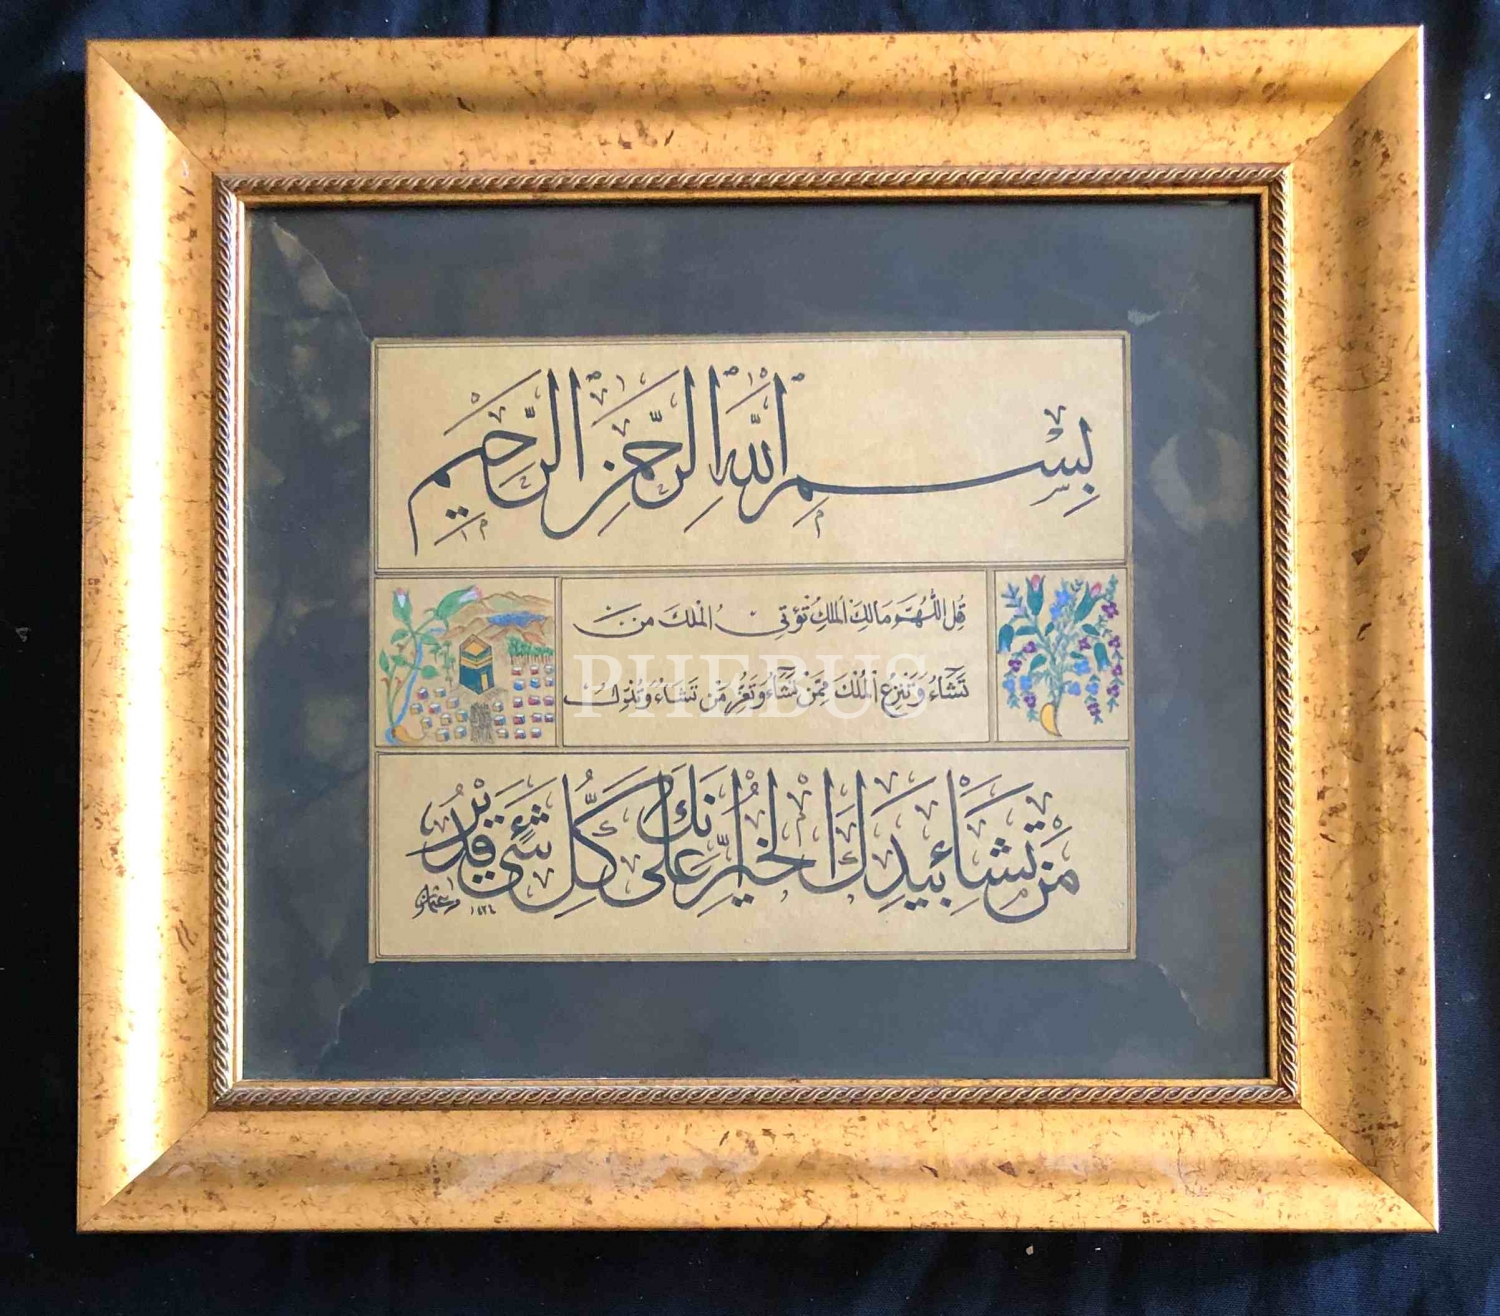 بِسْمِ اللَّهِ الرَّحْمَنِ الرَّحِيمِ
قُلِ اللَّهُمَّ مَالِكَ الْمُلْكِ تُؤْتِي الْمُلْكَ مَنْ
تَشَاءُ وَتَنْزِعُ الْمُلْكَ مِمَّنْ تَشَاءُ وَتُعِزُّ مَنْ تَشَاءُ وَتُذِلُّ
PHEBUS
مَنْ تَشَاءُ بِيَدِكَ الْخَيْرُ إِنَّكَ عَلَى كُلِّ شَيْءٍ قَدِيرٌ